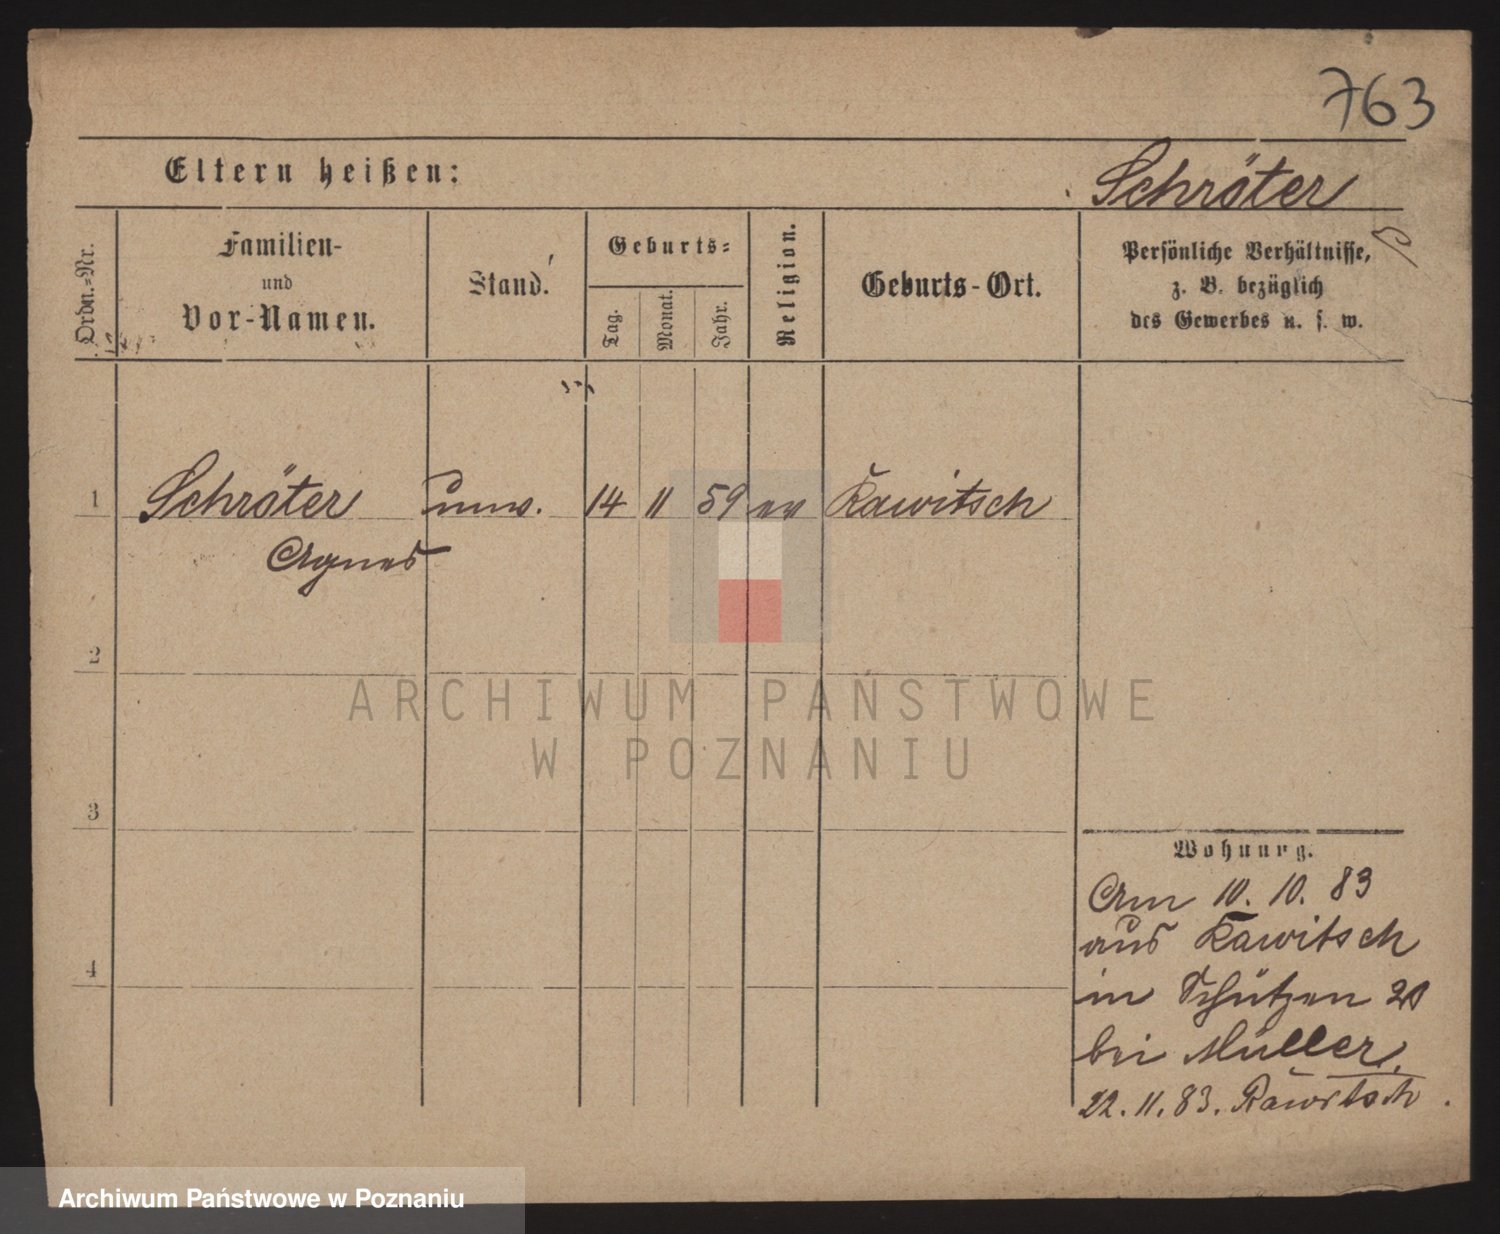 763
Eltern heißen:
Schröter
Ordn.-Nr.
Familien-
und
Vor-Namen.
Stand.
Geburts-
Tag.
Monat.
Jahr.
Religion.
Geburts-Ort.
Persönliche Verhältnisse,
z. B. bezüglich
des Gewerbes u. s. w.
1 Schröter unv. 14 11 59 ev Rawitsch
Agnes
2
3
4
Wohnung.
Am 10. 10. 83
aus Rawitsch
in Schützen
bei Müller.
22. 11. 83. Rawitsch.
ARCHIWUM PAŃSTWOWE
W POZNANIU
Archiwum Państwowe w Poznaniu